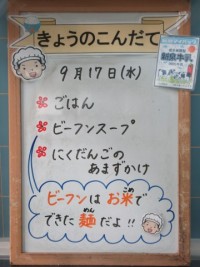 きょうのこんだて
9月17日(水)
ごはん
ビーフンスープ
にくだんごの
あまずけ
ビーフンはお米で
こめ
できた麺だよ!!
めん